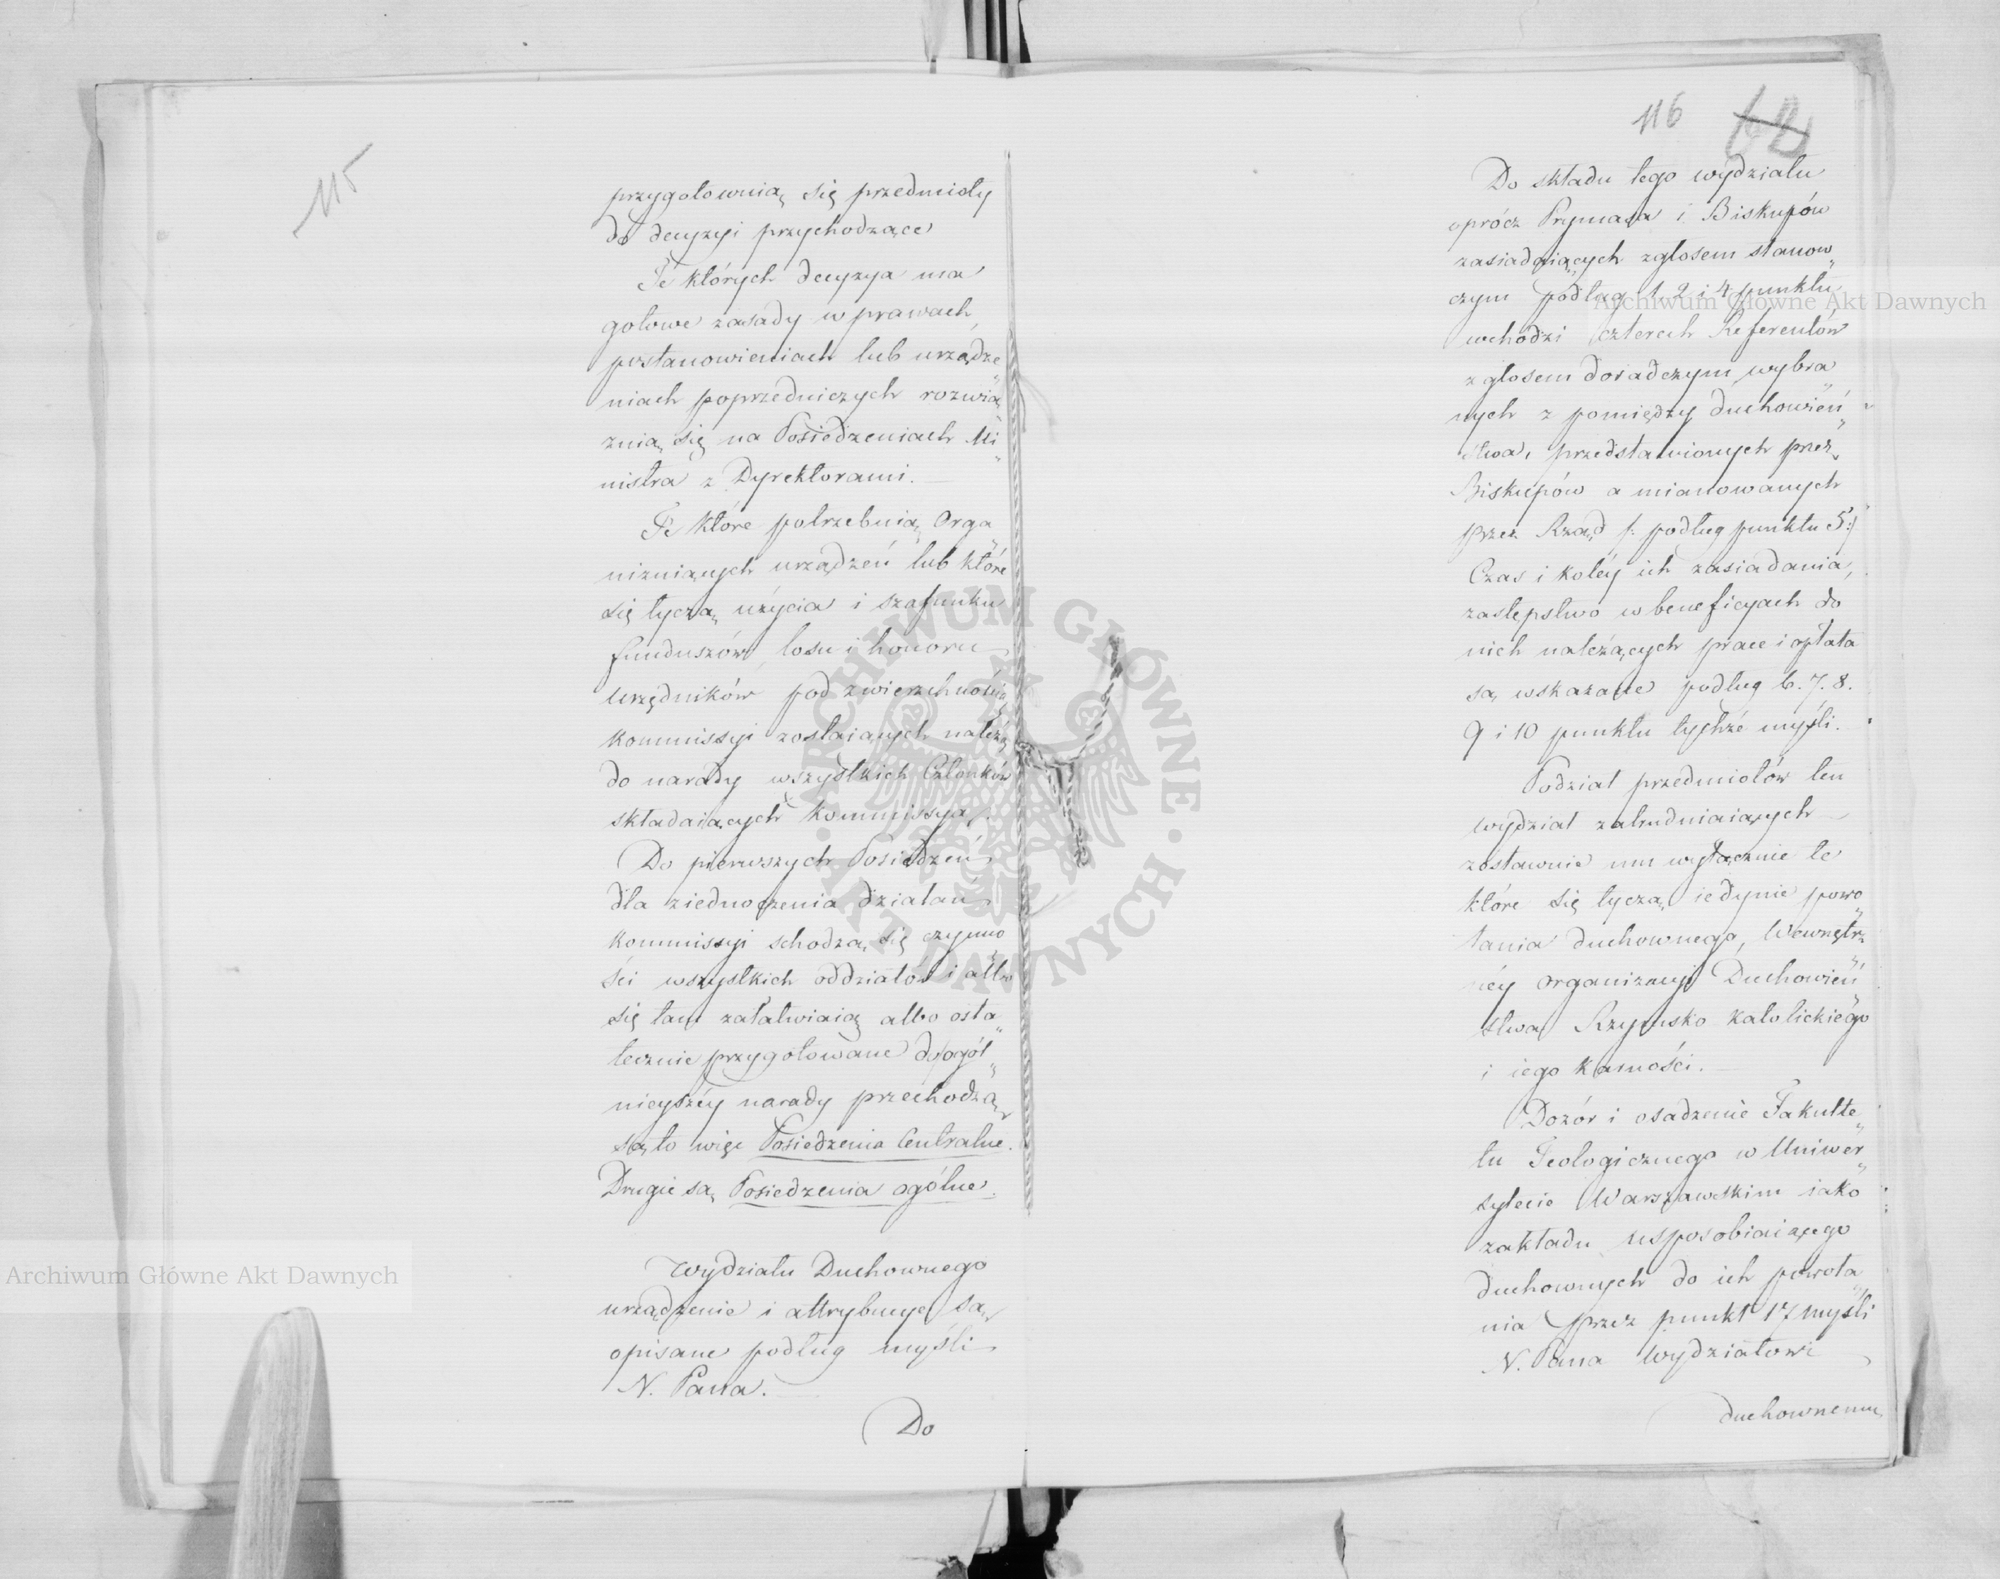 115
przygotownią się przedmioty
do decyzyi przychodzące
Te których decyzya ma
gotowe zasady w prawach,
postanowieniach lub urządze„
niach poprzedniczych rozwią„
znią się na Posiedzeniach Mi„
nistra z Dyrektorami. —
Te które potrzebnią Orga„
nizniących urządzeń lub które
się tyczą użycia i szafunku
funduszów, losu i honoru
urzędników pod zwierzchnością
kommissyi zostaiących należą
do narady wszystkich Członków
składaiących Kommissyą.
Do pierwszych Posiedzeń
dla ziednoczenia działań
Kommissyi schodzą się czynno„
ści wszystkich oddziałów i albo
się tam załatwiaią albo osta„
tecznie przygotowane do ogól„
nieyszéy narady przechodzą,
są to więc Posiedzenia Centralne.
Drugie są Posiedzenia ogólne.
Wydziału Duchownego
urządzenie i attrybucye są
opisane podług myśli
N. Pana. —
Do
116 68
Do składu tego wydziału
oprócz Prymasa i Biskupów
zasiadaiących z głosem stanow„
czym podług 1. 2 i 4 punktu
wchodzi czterech Referentów
z głosem doradczym, wybra„
nych z pomiędzy duchowień„
stwa, przedstawionych przez
Biskupów a mianowanych
przez Rząd /: podług punktu 5:/
Czas i koléy ich zasiadania,
zastępstwo w beneficyach do
nich należących prace i opłata
są wskazane podług 6. 7. 8.
9 i 10 punktu tychże myśli.
Podział przedmiotów ten
wydział zatrudniaiących
zostawnie mu wyłącznie te
które się tyczą iedynie powo„
łania duchownego, Wewnętrz„
néy organizacyi Duchowień„
stwa Rzymsko katolickiego
i iego karności. —
Dozór i osadzenie Fakulte„
tu Teologicznego w Uniwer„
sytecie Warszawskim iako
zakładu usposobiaiącego
duchownych do ich powoła„
nia przez punkt 17 myśli
N. Pana Wydziałowi
duchownemu
Archiwum Główne Akt Dawnych
Archiwum Główne Akt Dawnych
ARCHIWUM GŁÓWNE · AKT DAWNYCH ·